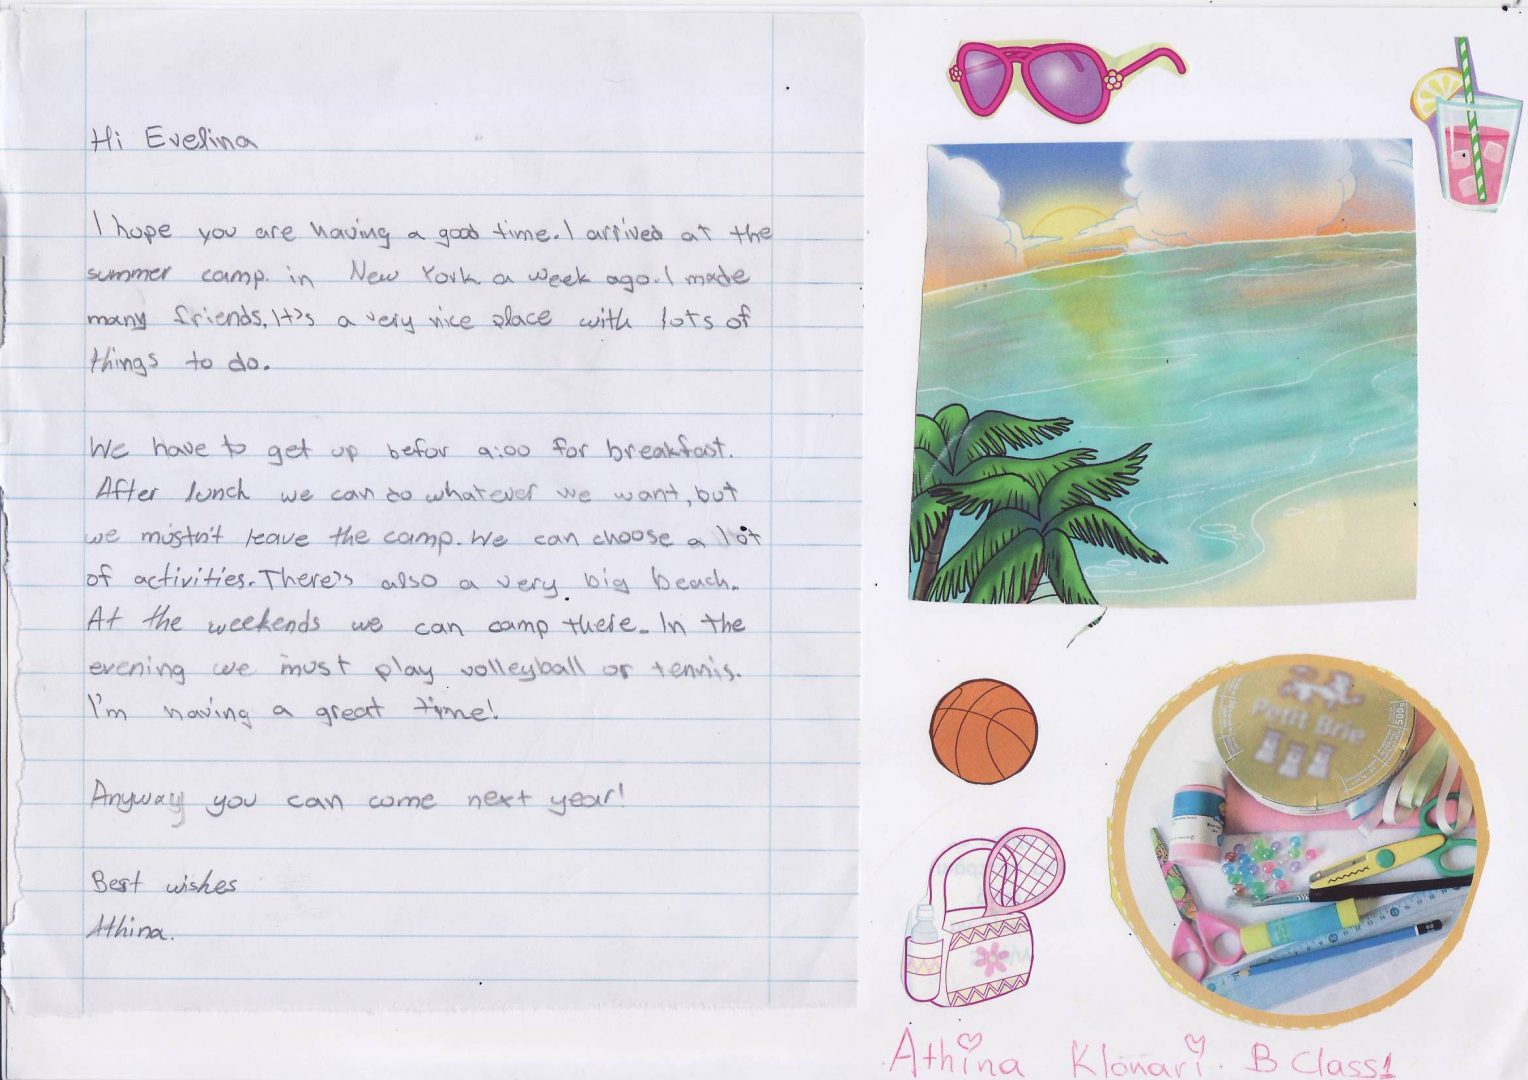 Hi Evelina
I hope you are having a good time. I arrived at the
summer camp. in New York a week ago. I made
many friends. It's a very nice place with lots of
things to do.
We have to get up befor 9:00 for breakfast.
After lunch we can do whatever we want, but
we mustn't leave the camp. We can choose a lot
of activities. There's also a very big beach.
At the weekends we can camp there. In the
evening we must play volleyball or tennis.
I'm having a great time!
Anyway you can come next year!
Best wishes
Athina.
Petit Brie
Athina Klonari B Class1